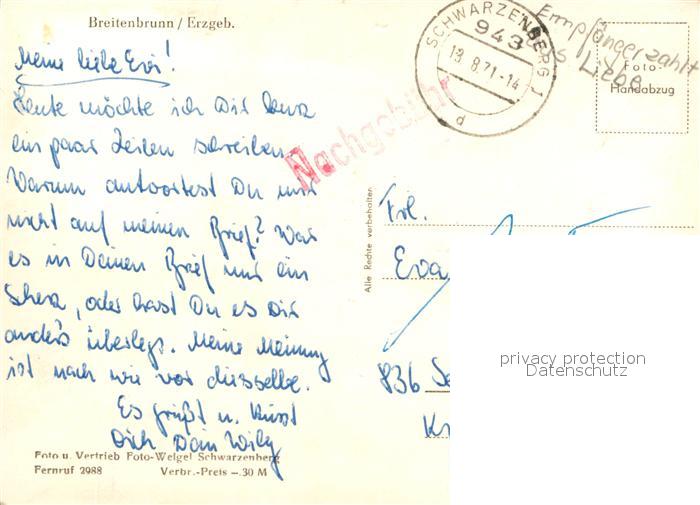 Breitenbrunn / Erzgeb.
Meine liebe Evi!
Heute möchte ich Dir kurz
ein paar Zeilen schreiben.
Warum antwortest Du mir
nicht auf meinen Brief? War
es in Deinen Brief nur ein
Scherz, oder hast Du es Dir
anders überlegt. Meine Meinung
ist nach wie vor dieselbe.
Es grüßt u. küsst
Dich Dein Willy
Foto u. Vertrieb Foto-Weigel Schwarzenberg
Fernruf 2988 Verbr.-Preis -.30 M
Nachgebühr
SCHWARZENBERG 1
943
18.8.71-14
d
Empfänger zahlt
Liebe
Foto-
Handabzug
Alle Rechte vorbehalten
Frl.
Eva
836 Se
Kr
privacy protection
Datenschutz